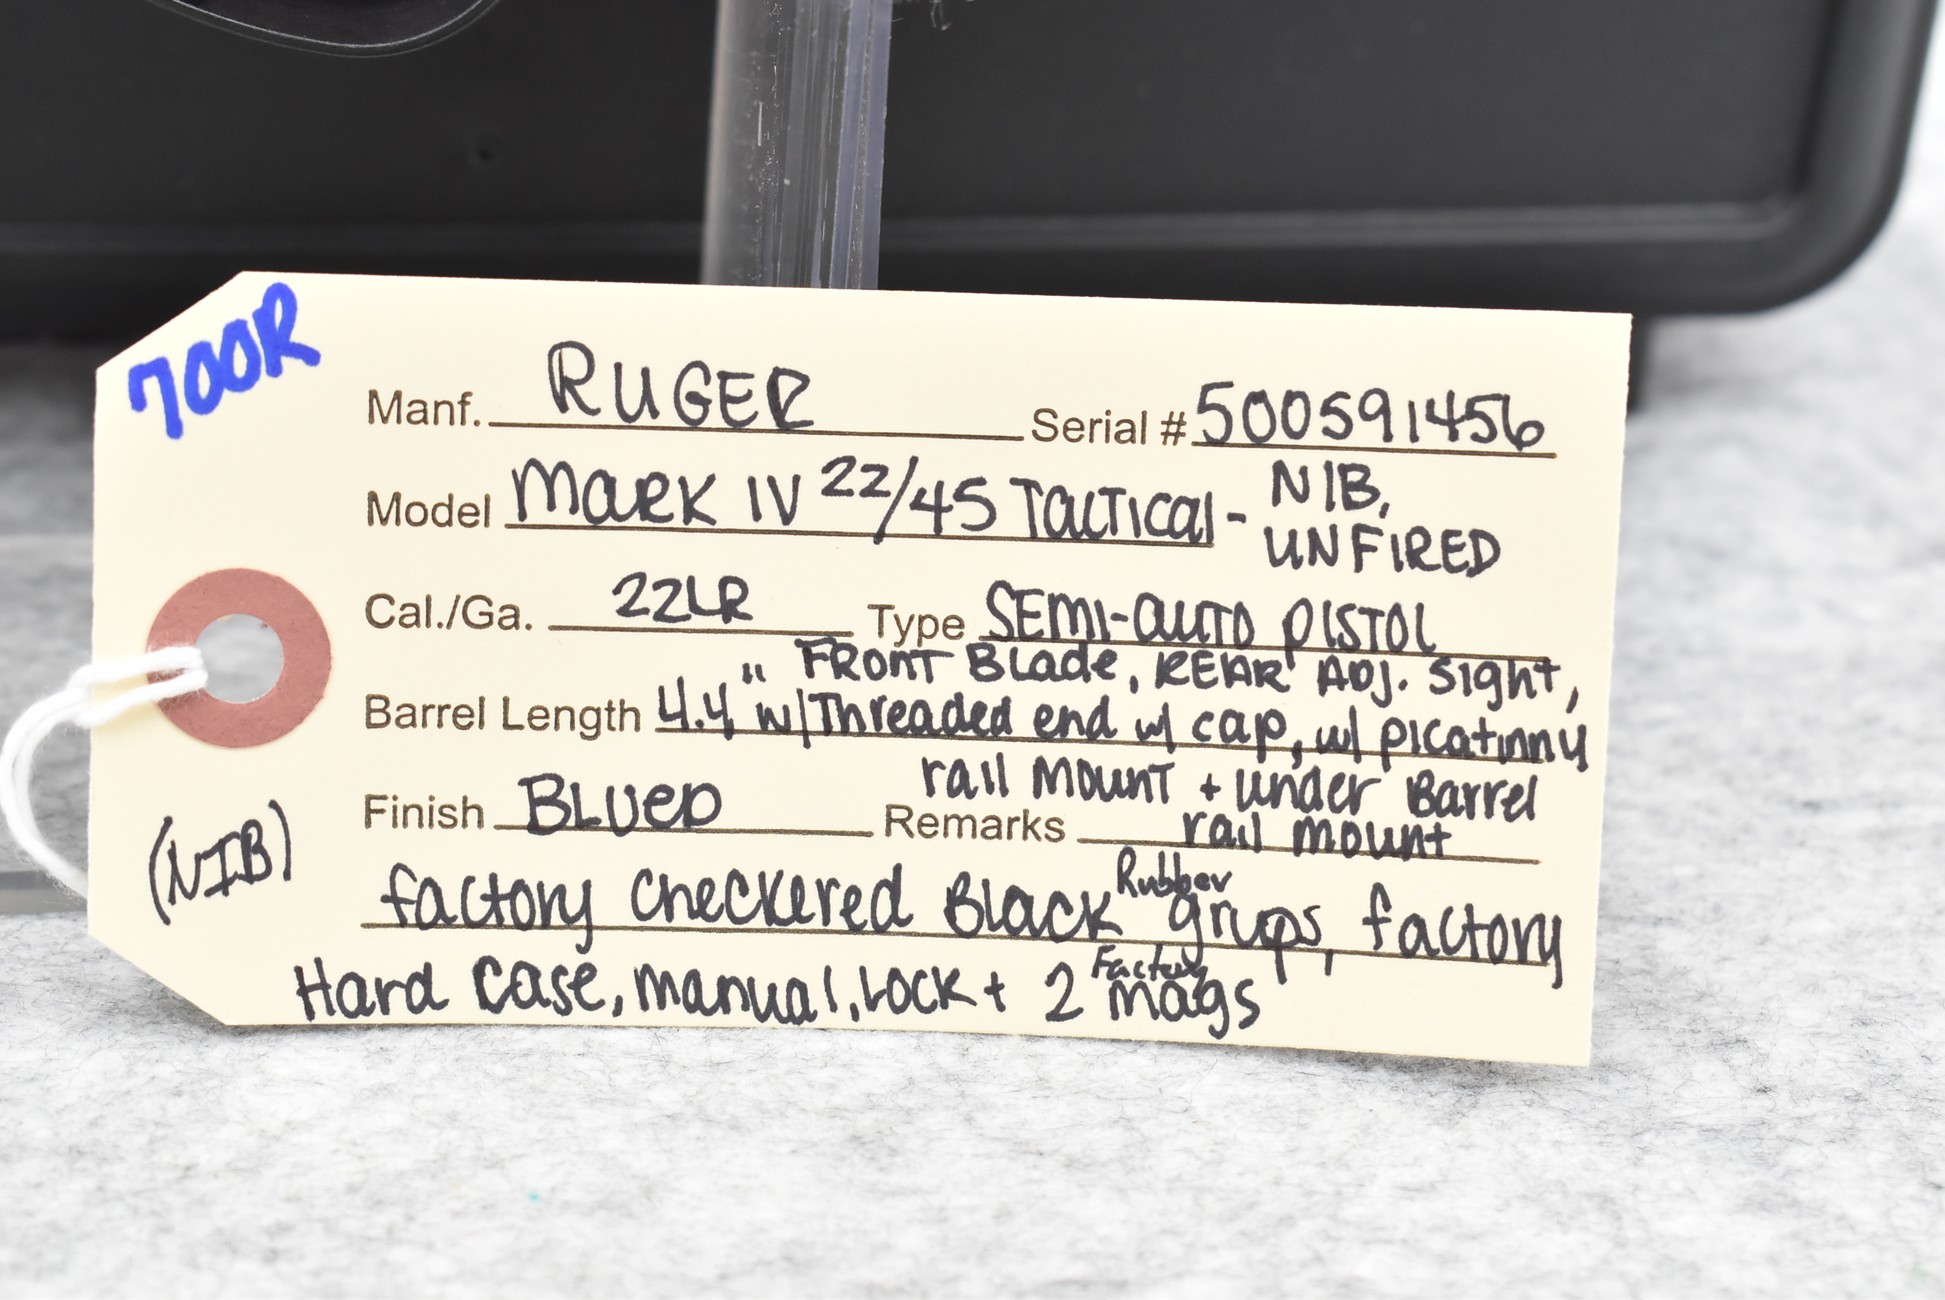 700R
Manf. RUGER Serial # 500591456
Model MARK IV 22/45 TACTICAL - NIB,
UNFIRED
Cal./Ga. 22LR Type SEMI-AUTO PISTOL
FRONT Blade, REAR ADJ. Sight,
Barrel Length 4.4" w/Threaded end w/ cap, w/ picatinny
rail mount + under Barrel
Finish BLUED Remarks rail mount
(NIB)
factory checkered Black Rubber grips, factory
Hard case, manual, Lock + 2 Factory mags